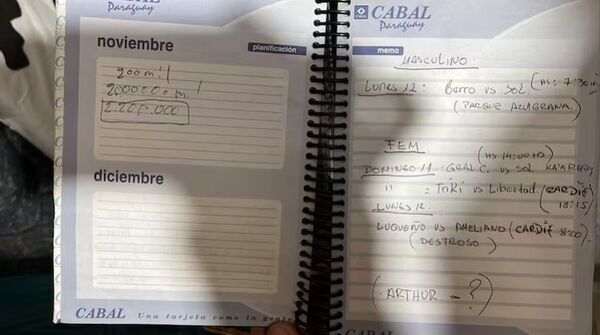 CABAL
Paraguay
noviembre
planificación
200 m!!
2000000 m!
2.200.000
diciembre
CABAL Una tarjeta como la gente
CABAL
Paraguay
memo
MASCULINO
LUNES 12: Barro vs SOL (HS: 7:30
(PARQUE AZUGRANA)
FEM
(HS 14:00 HS)
DOMINGO 11 GRAL C. vs SOL KA'ARENDY
" = TRIKI vs Libertad (CARDIF
18:15)
LUNES 12
LUQUEÑO vs AMELIANO (CARDIF 8:20)
(DESTROSO)
(ARTHUR = ?)
CABAL